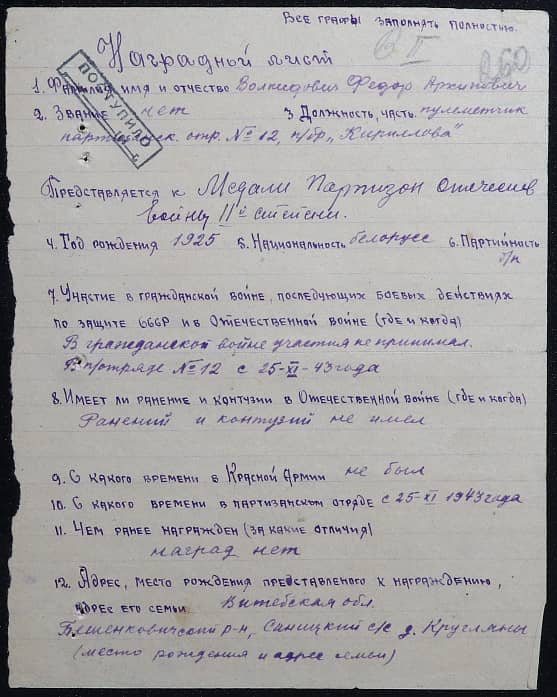 Все графы заполнять полностью.
II
260
Наградной лист
ПОСТУПИЛО
1. Фамилия имя и отчество Волкидович Федор Архипович
2. Звание нет 3 Должность, часть пулеметчик
партизанск. отр. № 12, п/бр „Кириллова"
Представляется к Медали Партизан Отечествен
войны II й степени.
4. Год рождения 1925 5. Национальность белорусс 6. Партийность
б/п
7. Участие в гражданской войне, последующих боевых действиях
по защите СССР и в Отечественной войне (где и когда)
В гражданской войне участия не принимал.
В п/отряде № 12 с 25-XI-43 года
8. Имеет ли ранение и контузии в Отечественной войне (где и когда)
Ранений и контузий не имел
9. С какого времени в Красной Армии не был
10. С какого времени в партизанском отряде с 25-XI 1943 года
11. Чем ранее награжден (за какие отличия)
наград нет
12. Адрес, место рождения представленого к награждению,
адрес его семьи Витебская обл.
Бешенковичский р-н, Саницкий с/с д. Кругляны
(место рождения и адрес семьи)